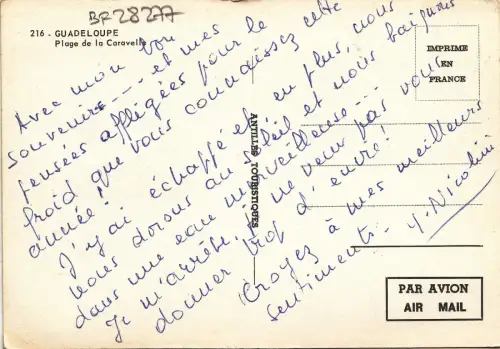 BF 28277
216 - GUADELOUPE
Plage de la Caravelle
IMPRIME
EN
FRANCE
Avec mon bon
souvenir --- et mes
pensées affligées pour le
froid que vous connaissez cette
année !
J'y ai échappé et en plus, nous
nous dorons au soleil et nous baignons
dans une eau merveilleuse ---
Je m'arrête, je ne veux pas vous
donner trop d'envie !
Croyez à mes meilleurs
sentiments - Y. Nicolini
ANTILLES TOURISTIQUES
PAR AVION
AIR MAIL